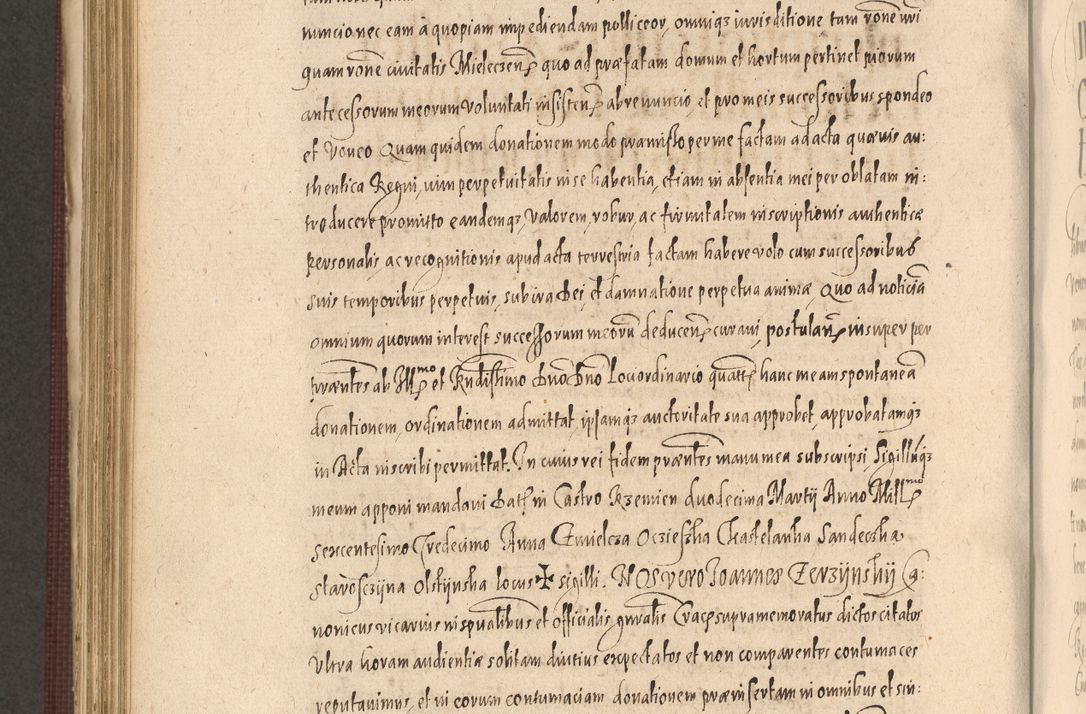 nuncio nec eam à quopiam impediendam polliceor, omniqꝫ iurisditione tam rõne mei
quam rõne ciuitatis Mieleczeñ quo ad præfatam domum et hortum pertinet piorum
antecessorum meorum voluntati insisteñ abrenuncio, et pro meis successoribus spondeo
et voueo Quam quidem donationem modo præmisso per me factam ad acta quævis au:
thentica Regni, vim perpetuitatis in se habentia, etiam in absentia mei per oblatam in:
troducere promitto eandemqꝫ valorem, robur, ac firmitatem inscriptionis authenticæ
personalis, ac recognitionis apud acta terrestria factam habere volo cum successoribus
suis temporibus perpetuis, sub ira Dei, et damnatione perpetua animæ, Quo ad noticiã
omnium quorum interest successorum meorũ deduceñ curaui, postulañ insuper per
præntes ab Illmo et Rndissimo Dno Dno Loci ordinario quatt hanc meam spontaneã
donationem, ordinationem admittat, ipsamqꝫ auctoritate sua approbet, approbatamqꝫ
in Acta inscribi permittat. In cuius rei fidem præntes manu mea subscripsi, Sigillũqꝫ
meum apponi mandaui Dat in Castro Rzemien duodecima Martij Anno Millmo
sexcentesimo Tredecimo Anna Czmielcza Ocziesska Chastelanka Sandeczka
starosczijna Olstijnska locus ✠ sigilli. Nos vero Joannes Zerzijnskij Ca:
nonicus vicarius in spualibus et officialis gnralis Crac supramemoratus dictos citatos
Ultra horam audientiæ solitam diutius expectatos et non comparentes contumaces
reputauimus, et in eorum contumaciam donationem præinsertam in omnibus et sin: